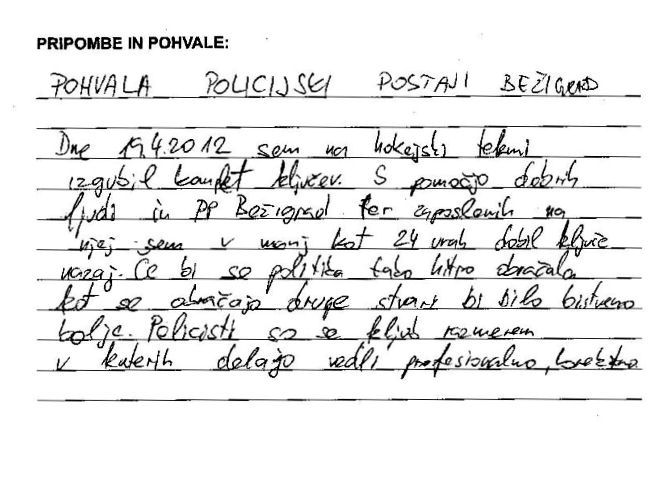 PRIPOMBE IN POHVALE:
POHVALA POLICIJSKI POSTAJI BEŽIGRAD
Dne 19.4.2012 sem na hokejski tekmi
izgubil komplet ključev. S pomočjo dobrih
ljudi in PP Bežigrad ter zaposlenih na
njej sem v manj kot 24 urah dobil ključe
nazaj. Če bi se politika tako hitro obračala
kot se obračajo druge stvari bi bilo bistveno
bolje. Policisti so se kljub razmeram
v katerih delajo vedli profesionalno,